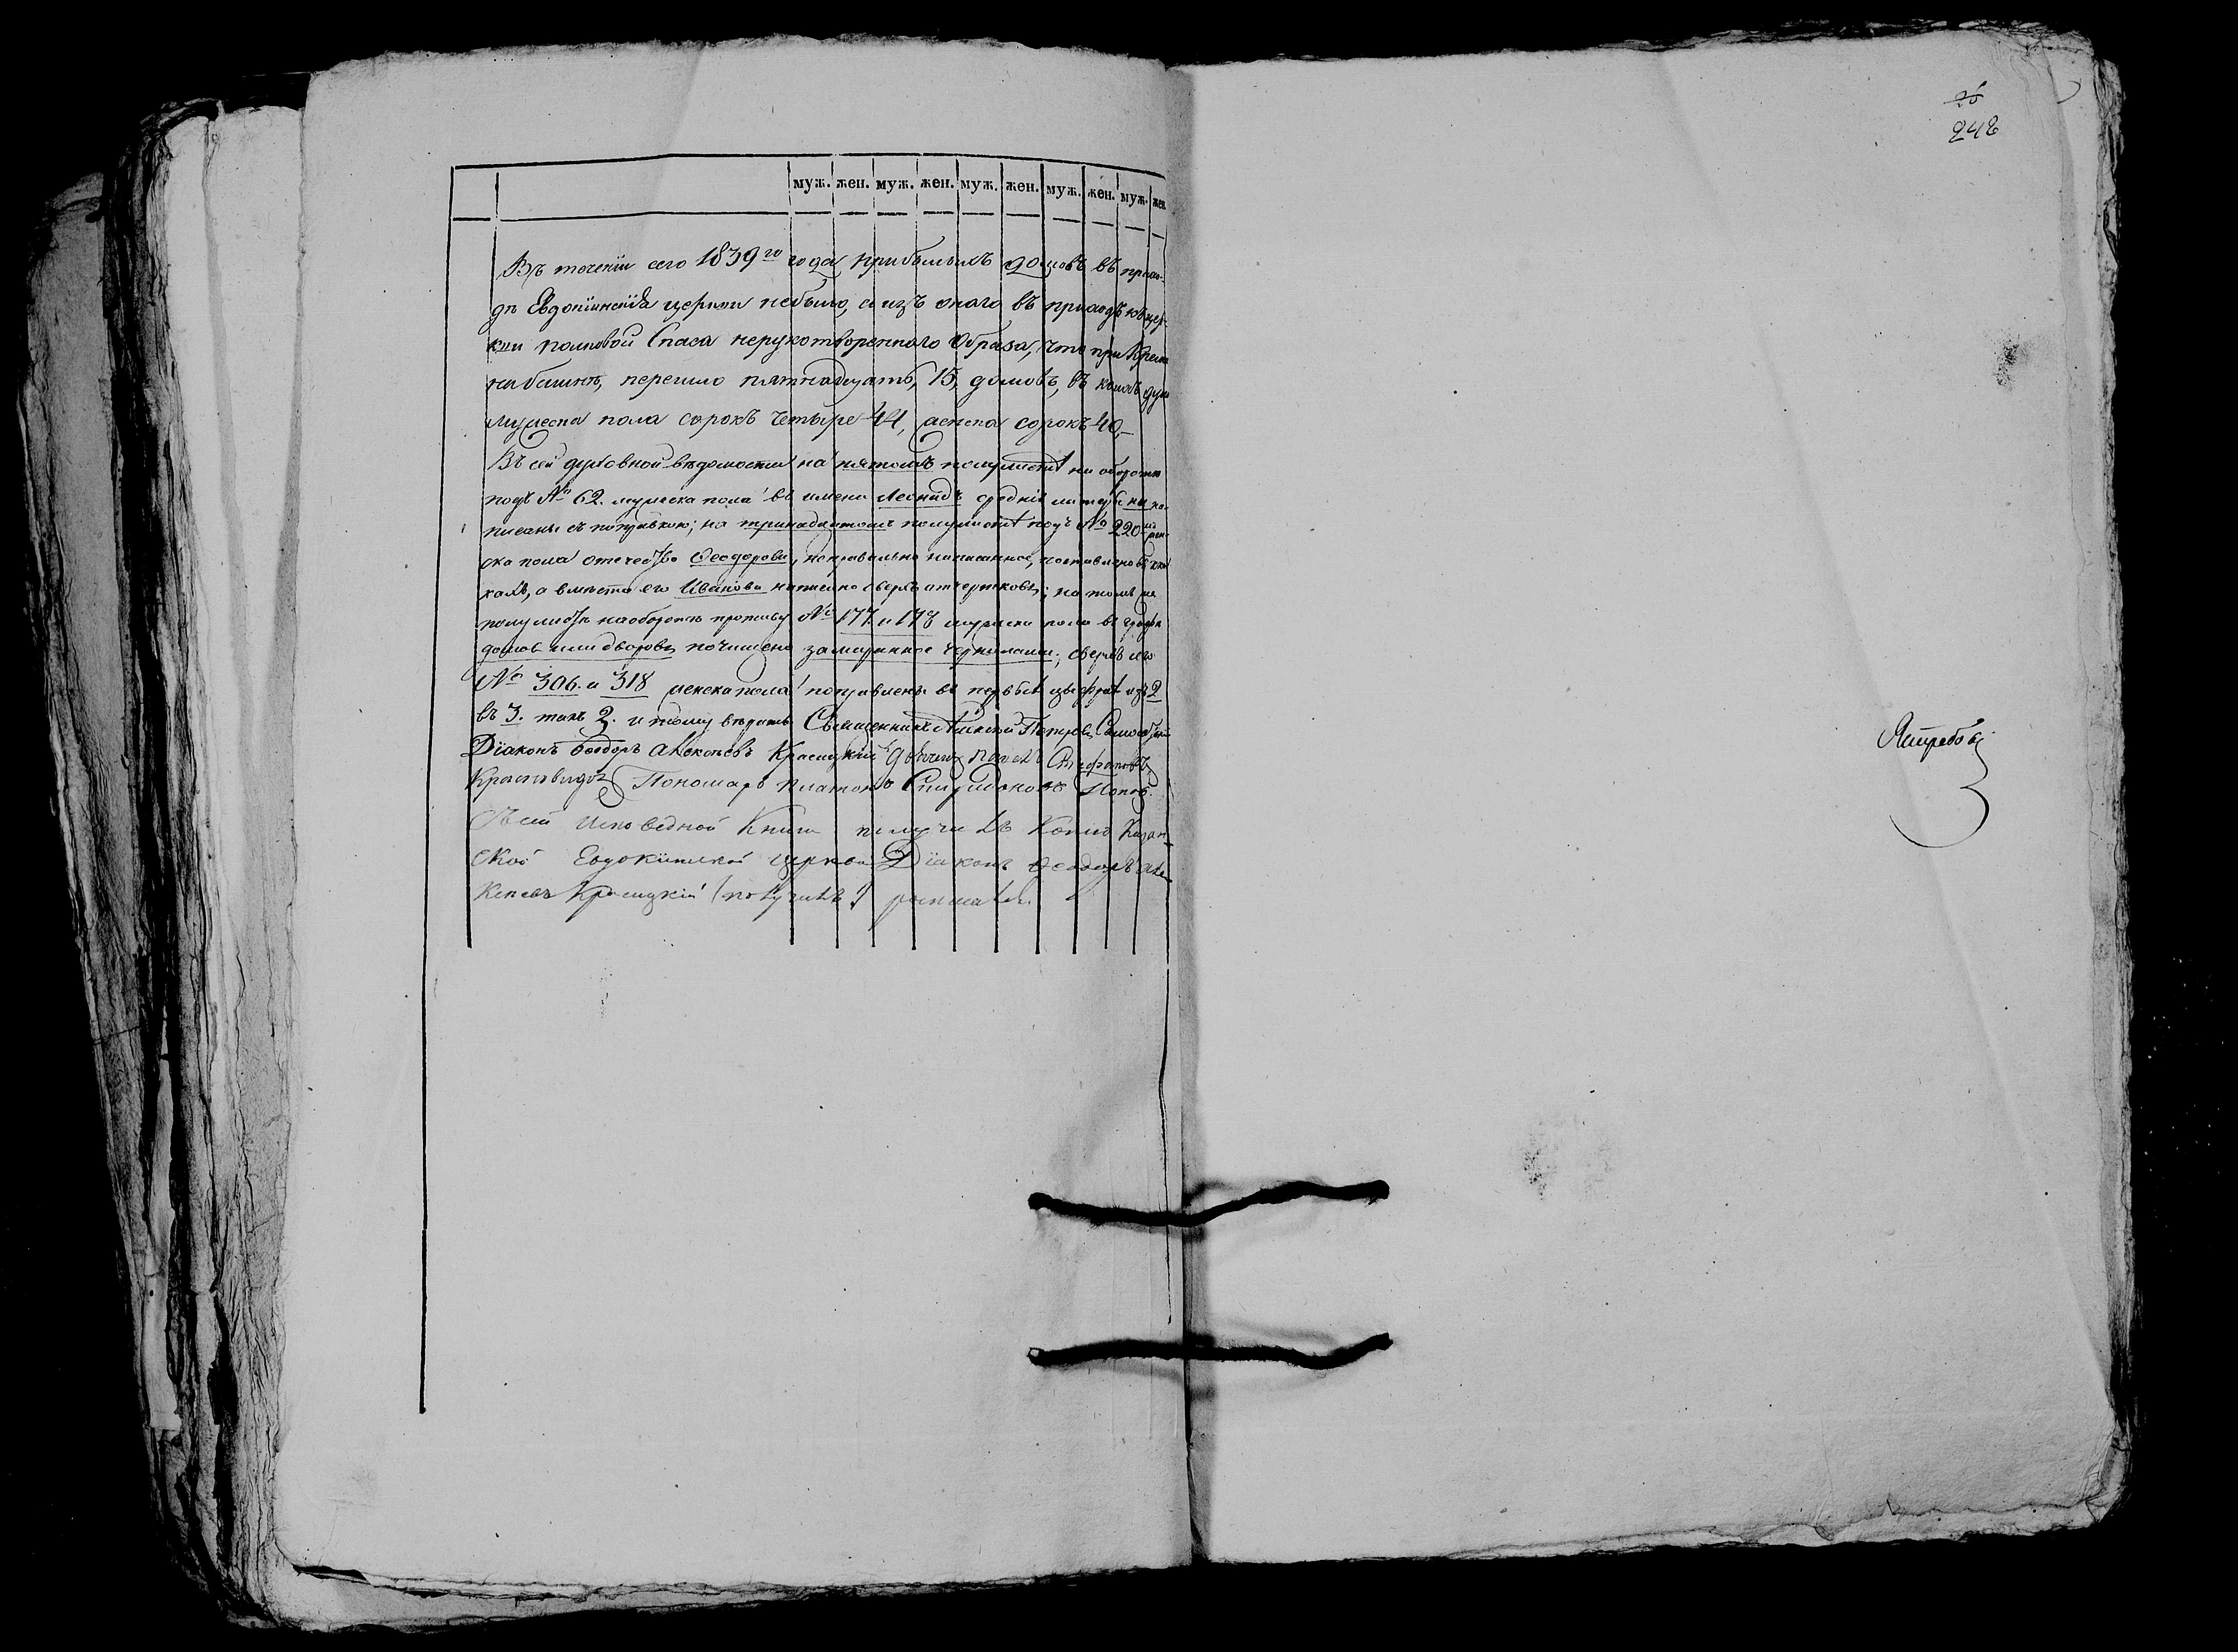 25
248
муж. жен. муж. жен. муж. жен. муж. жен. муж. жен.
Въ теченіи сего 1839го года прибылыхъ домовъ въ прихо-
дѣ Евдокіинскія церкви небыло, а изъ онаго въ приходъ къ цер-
кви полковой Спаса нерукотвореннаго Образа, что при
башнѣ, перешло пятнадцать, 15, домовъ, въ коихъ душъ
мужеска пола сорокъ четыре 44, женска сорокъ 40,
Въ сей духовной вѣдомости на пятомъ полулистѣ на оборотѣ
подъ № 62. мужеска пола въ имени Леонидъ среднія литеры на-
писаны съ поправкою; на тринадцатомъ полулистѣ подъ № 220 жен-
ска пола отечество Ѳеодорова, неправильно написанное, поставлено въ
а вмѣсто его Иванова написано сверхъ; на томъ же
полулистѣ наоборотѣ противу № 177 и 178 мужеска пола въ графѣ
домовъ или дворовъ почищено замаранное чернилами; сверхъ его
№ 306. и 318 женска пола поправлены въ первой цыфрѣ изъ 2
въ 3. такъ 2. и тому вѣрить. Священникъ Алексій Петровъ
Діаконъ Ѳеодоръ Алексѣевъ Красицкій дьячекъ Павелъ
Красновидов Пономарь Платонъ Спиридоновъ Попов.
Съ сей Исповедной Книги получилъ Копію Казан-
ской Евдокіинской церкви Діаконъ Ѳеодоръ Але-
ксѣевъ Красицкій (получилъ) росписался.
Ястребовъ